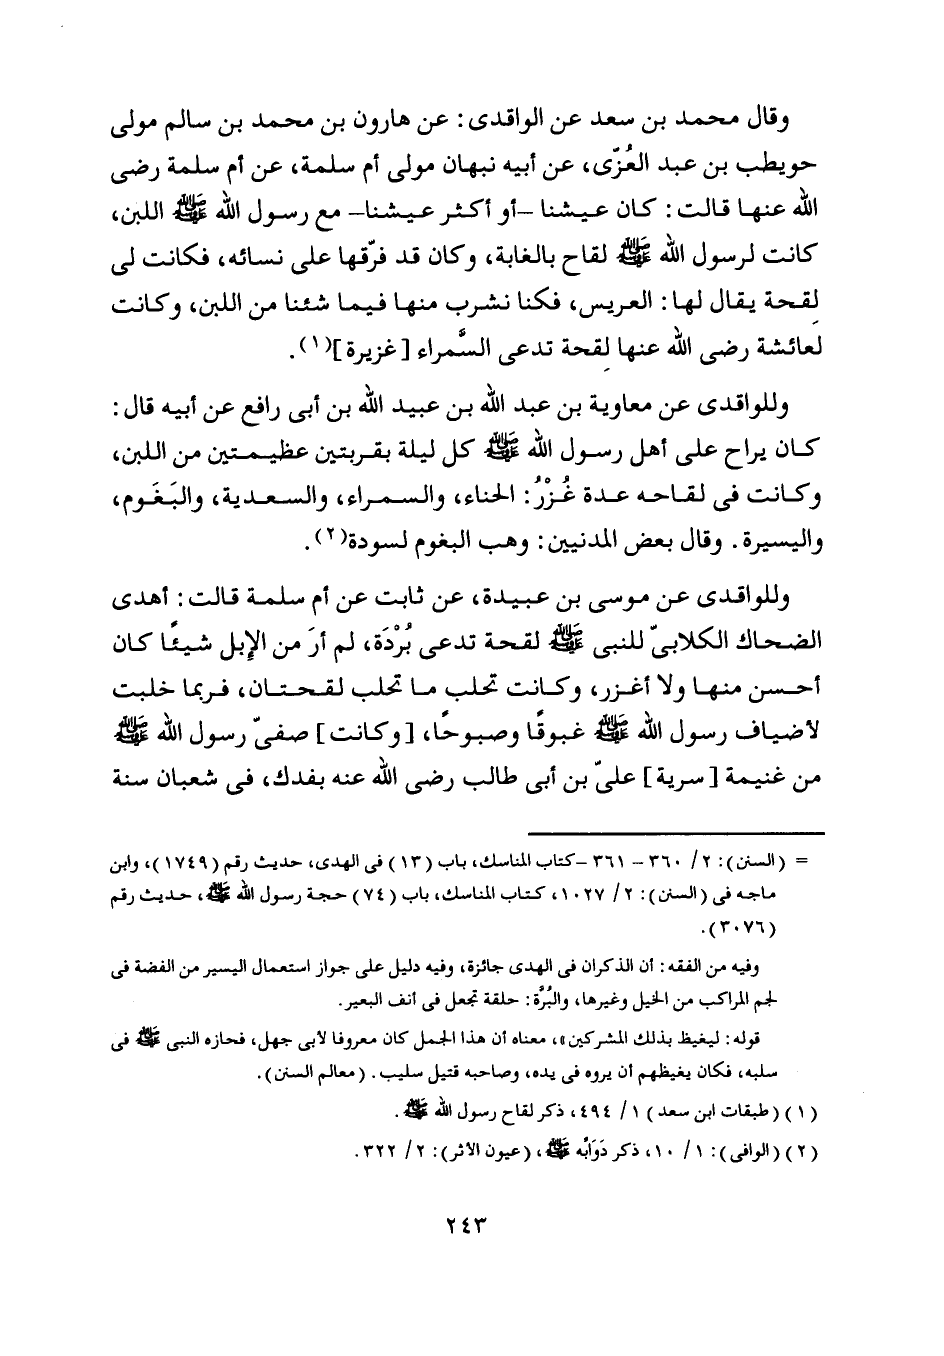 وقال محمد بن سعد عن الواقدى: عن هارون بن محمد بن سالم مولى
حويطب بن عبد العُزّى، عن أبيه نبهان مولى أم سلمة، عن أم سلمة رضى
الله عنها قالت: كان عيشنا -أو أكثر عيشنا- مع رسول الله ﷺ اللبن،
كانت لرسول الله ﷺ لقاح بالغابة، وكان قد فرّقها على نسائه، فكانت لى
لِقحة يقال لها: العريس، فكنا نشرب منها فيما شئنا من اللبن، وكانت
لعائشة رضى الله عنها لِقحة تدعى السَّمراء [غزيرة](١).
وللواقدى عن معاوية بن عبد الله بن عبيد الله بن أبى رافع عن أبيه قال:
كان يراح على أهل رسول الله ﷺ كل ليلة بقربتين عظيمتين من اللبن،
وكانت فى لقاحه عدة غُزْرُ: الحناء، والسمراء، والسعدية، والبَغَوم،
واليسيرة. وقال بعض المدنيين: وهب البغوم لسودة(٢).
وللواقدى عن موسى بن عبيدة، عن ثابت عن أم سلمة قالت: أهدى
الضحاك الكلابىّ للنبى ﷺ لقحة تدعى بُرْدَة، لم أرَ من الإبل شيئًا كان
أحسن منها ولا أغزر، وكانت تحلب ما تحلب لقحتان، فربما حلبت
لأضياف رسول الله ﷺ غبوقًا وصبوحًا، [وكانت] صفىّ رسول الله ﷺ
من غنيمة [سرية] علىّ بن أبى طالب رضى الله عنه بفدك، فى شعبان سنة
= (السنن): ٢/ ٣٦٠ - ٣٦١ -كتاب المناسك، باب (١٣) فى الهدى، حديث رقم (١٧٤٩)، وابن
ماجه فى (السنن): ٢/ ١٠٢٧، كتاب المناسك، باب (٧٤) حجة رسول الله ﷺ، حديث رقم
(٣٠٧٦).
وفيه من الفقه: أن الذكران فى الهدى جائزة، وفيه دليل على جواز استعمال اليسير من الفضة فى
لجم المراكب من الخيل وغيرها، والبُرَّة: حلقة تجعل فى أنف البعير.
قوله: ليغيظ بذلك المشركين»، معناه أن هذا الجمل كان معروفا لأبى جهل، فحازه النبى ﷺ فى
سلبه، فكان يغيظهم أن يروه فى يده، وصاحبه قتيل سليب. (معالم السنن).
(١) (طبقات ابن سعد) ١/ ٤٩٤، ذكر لقاح رسول الله ﷺ.
(٢) (الوافى): ١/ ١٠، ذكر دَوَابِّه ﷺ، (عيون الأثر): ٢/ ٣٢٢.
٢٤٣